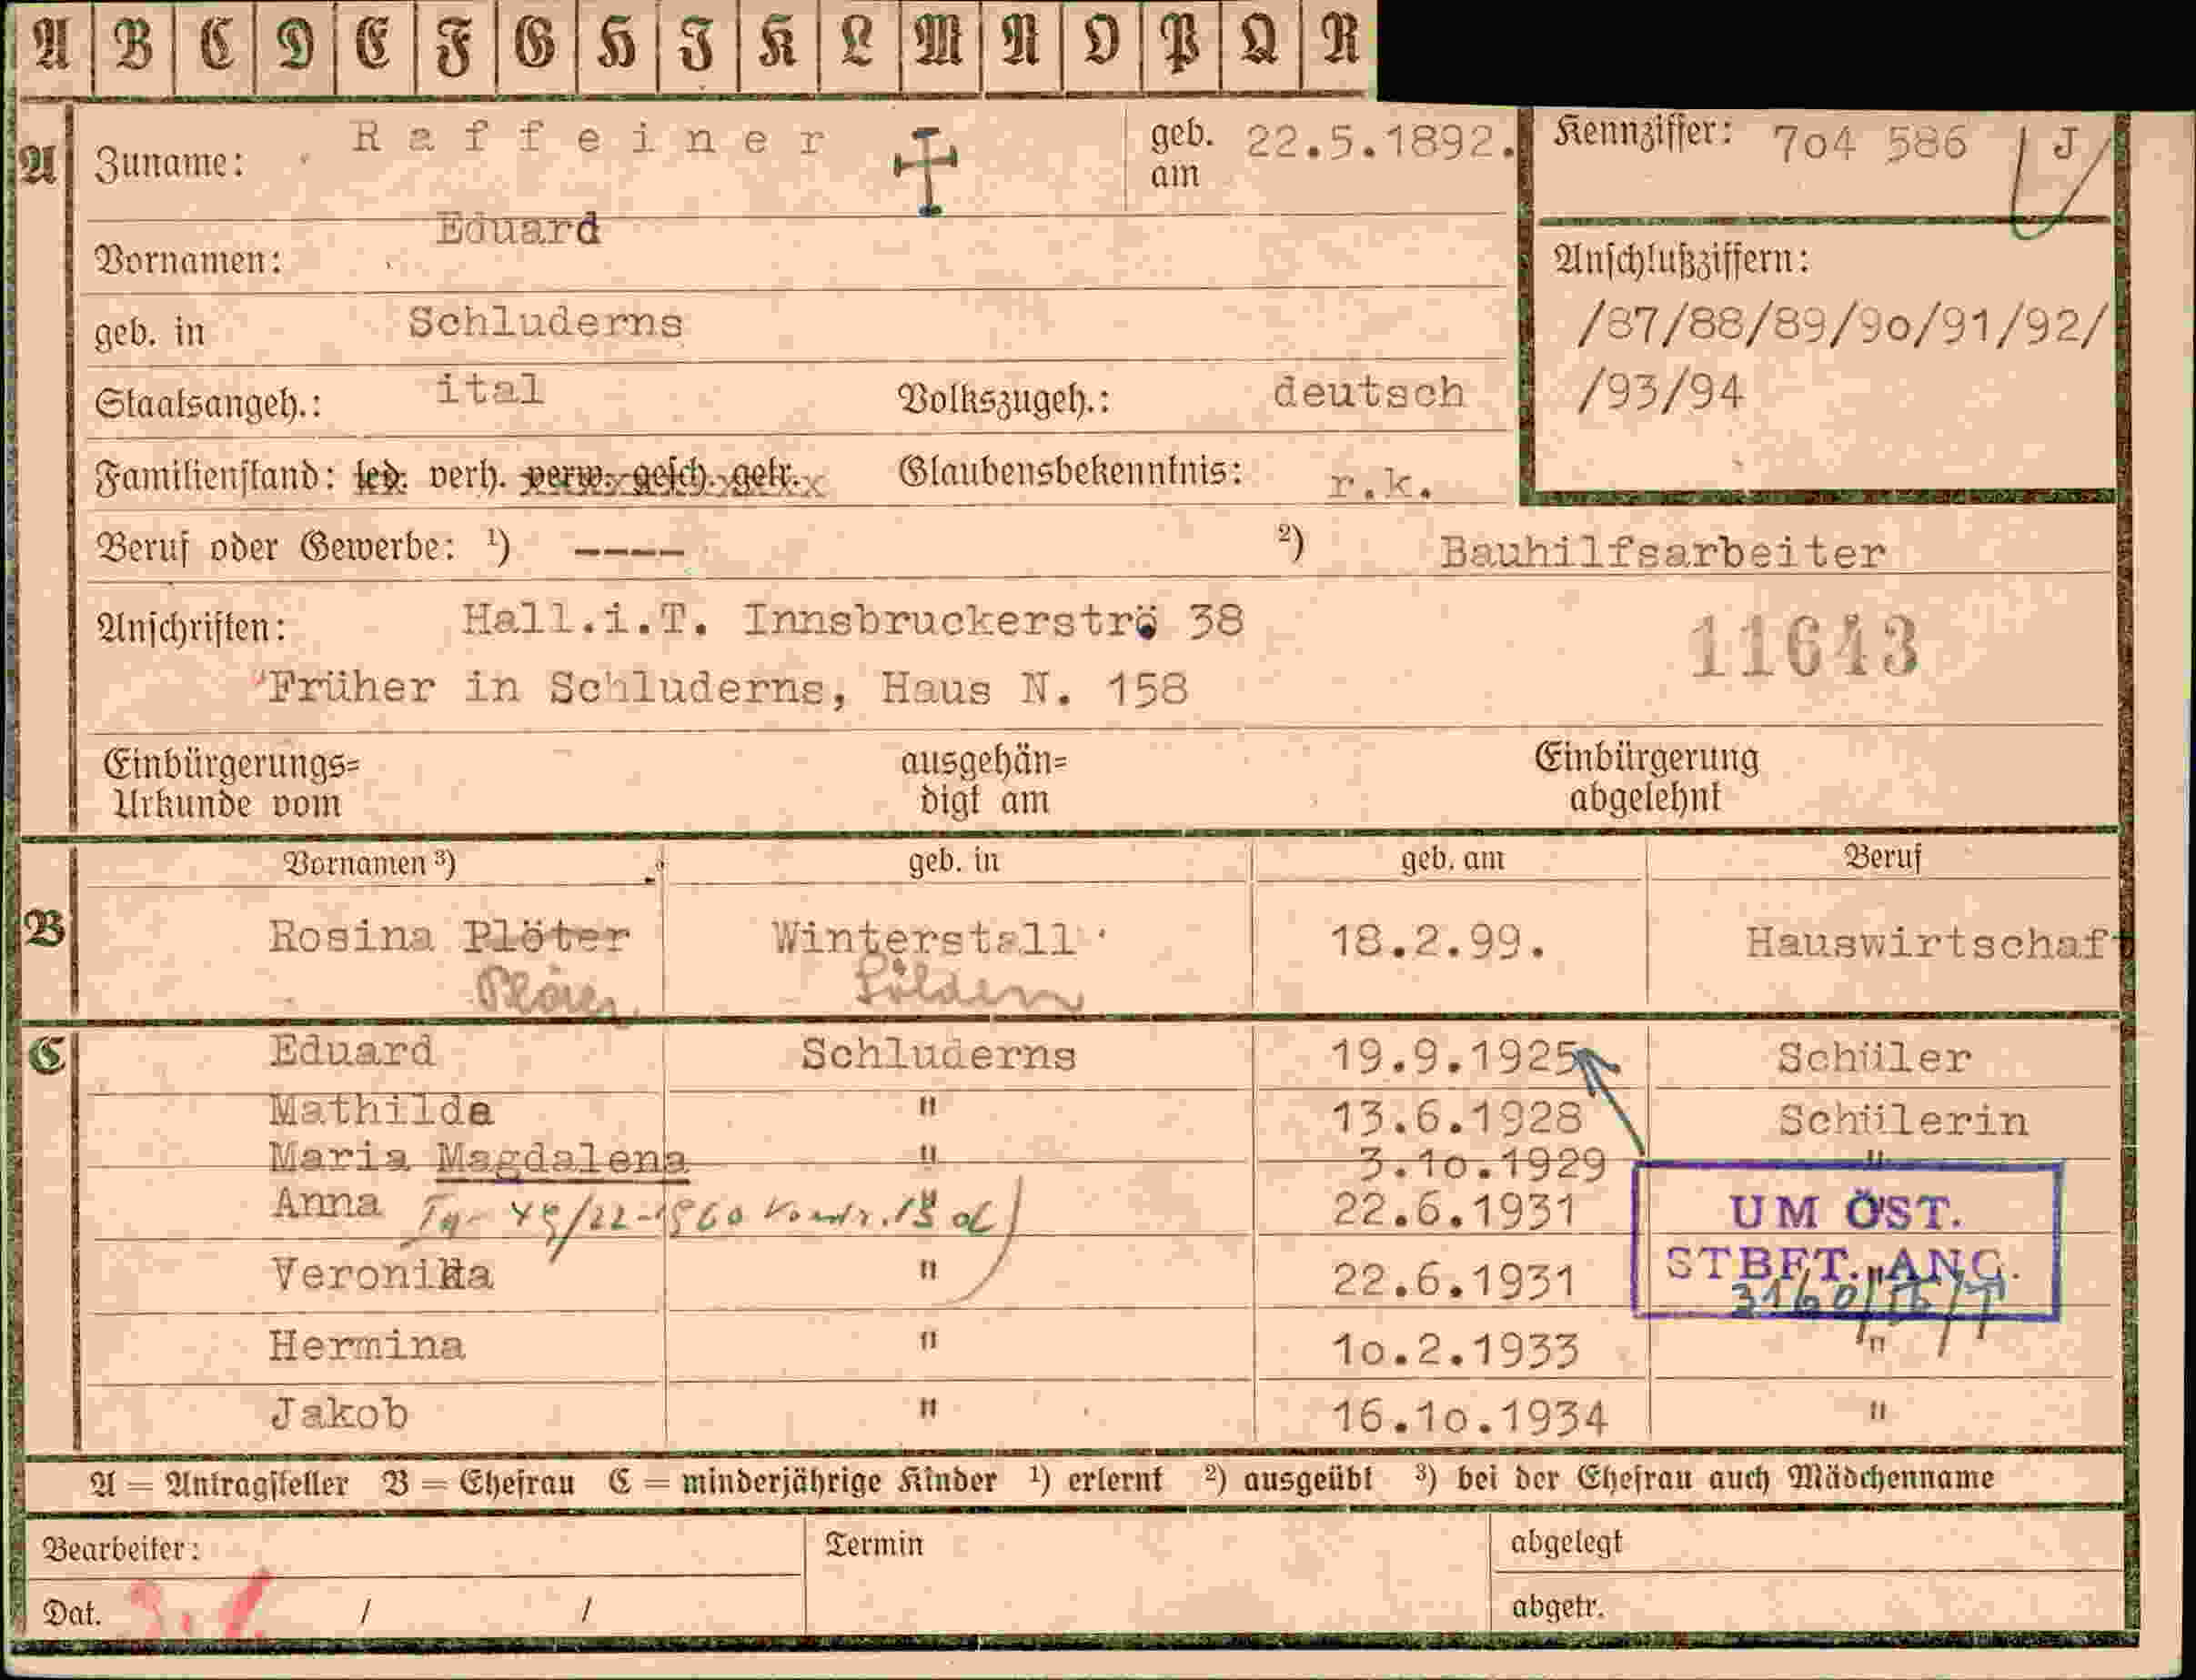 A B C D E F G H J K L M N O P Q R
A Zuname: Raffeiner geb. am 22.5.1892. Kennziffer: 7o4 586 J
Vornamen: Eduard
Anschlußziffern:
geb. in Schluderns /87/88/89/9o/91/92/
Staatsangeh.: ital Volkszugeh.: deutsch /93/94
Familienstand: led. verh. verw. gesch. getr. Glaubensbekenntnis: r.k.
Beruf oder Gewerbe: ¹) ---- ²) Bauhilfsarbeiter
Anschriften: Hall.i.T. Innsbruckerstr. 38
11643
Früher in Schluderns, Haus N. 158
Einbürgerungs= ausgehän= Einbürgerung
Urkunde vom digt am abgelehnt
Vornamen ³) geb. in geb. am Beruf
B Rosina Plöter Winterstall 18.2.99. Hauswirtschaft
Sölden
C Eduard Schluderns 19.9.1925 Schüler
Mathilde " 13.6.1928 Schülerin
Maria Magdalena " 3.1o.1929 "
Anna " 22.6.1931
UM ÖST.
STBFT. ANG.
Veronika " 22.6.1931 "
Hermina " 1o.2.1933 "
Jakob " 16.1o.1934 "
A = Antragsteller B = Ehefrau C = minderjährige Kinder ¹) erlernt ²) ausgeübt ³) bei der Ehefrau auch Mädchenname
Bearbeiter: Termin abgelegt
Dat. / / abgetr.